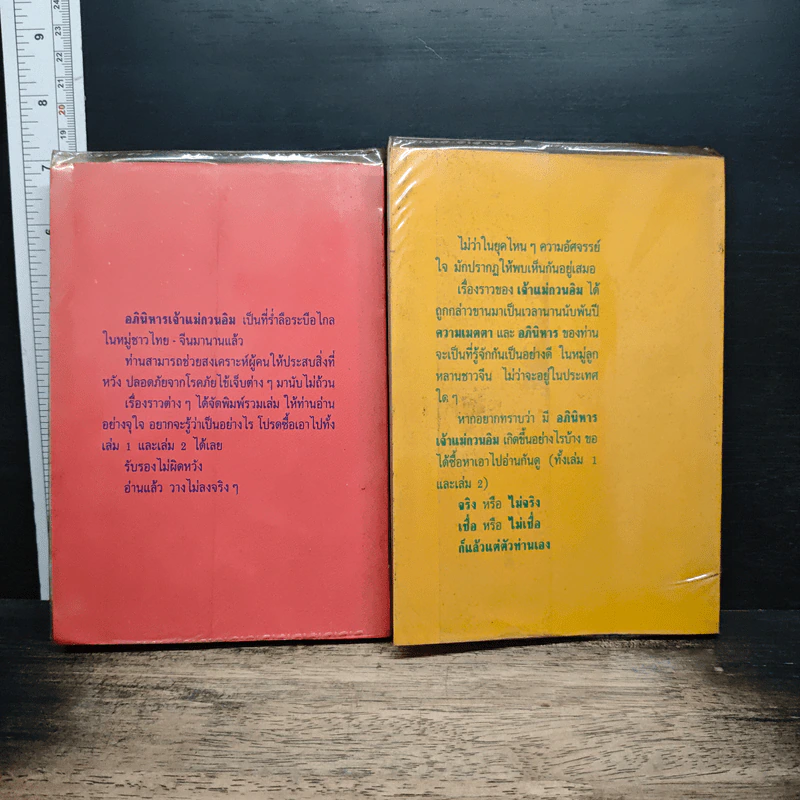 อภินิหารเจ้าแม่กวนอิม เป็นที่ร่ำลือระบือไกล
ในหมู่ชาวไทย - จีนมานานแล้ว
ท่านสามารถช่วยสงเคราะห์ผู้คนให้ประสบสิ่งที่
หวัง ปลอดภัยจากโรคภัยไข้เจ็บต่าง ๆ มานับไม่ถ้วน
เรื่องราวต่าง ๆ ได้จัดพิมพ์รวมเล่ม ให้ท่านอ่าน
อย่างจุใจ อยากจะรู้ว่าเป็นอย่างไร โปรดซื้อเอาไปทั้ง
เล่ม 1 และเล่ม 2 ได้เลย
รับรองไม่ผิดหวัง
อ่านแล้ว วางไม่ลงจริง ๆ
ไม่ว่าในยุคไหน ๆ ความอัศจรรย์
ใจ มักปรากฏให้พบเห็นกันอยู่เสมอ
เรื่องราวของ เจ้าแม่กวนอิม ได้
ถูกกล่าวขานมาเป็นเวลานานนับพันปี
ความเมตตา และ อภินิหาร ของท่าน
จะเป็นที่รู้จักกันเป็นอย่างดี ในหมู่ลูก
หลานชาวจีน ไม่ว่าจะอยู่ในประเทศ
ใด ๆ
หากอยากทราบว่า มี อภินิหาร
เจ้าแม่กวนอิม เกิดขึ้นอย่างไรบ้าง ขอ
ได้ซื้อหาเอาไปอ่านกันดู (ทั้งเล่ม 1
และเล่ม 2)
จริง หรือ ไม่จริง
เชื่อ หรือ ไม่เชื่อ
ก็แล้วแต่ตัวท่านเอง
9
8
7
24
23
22
21
20
19